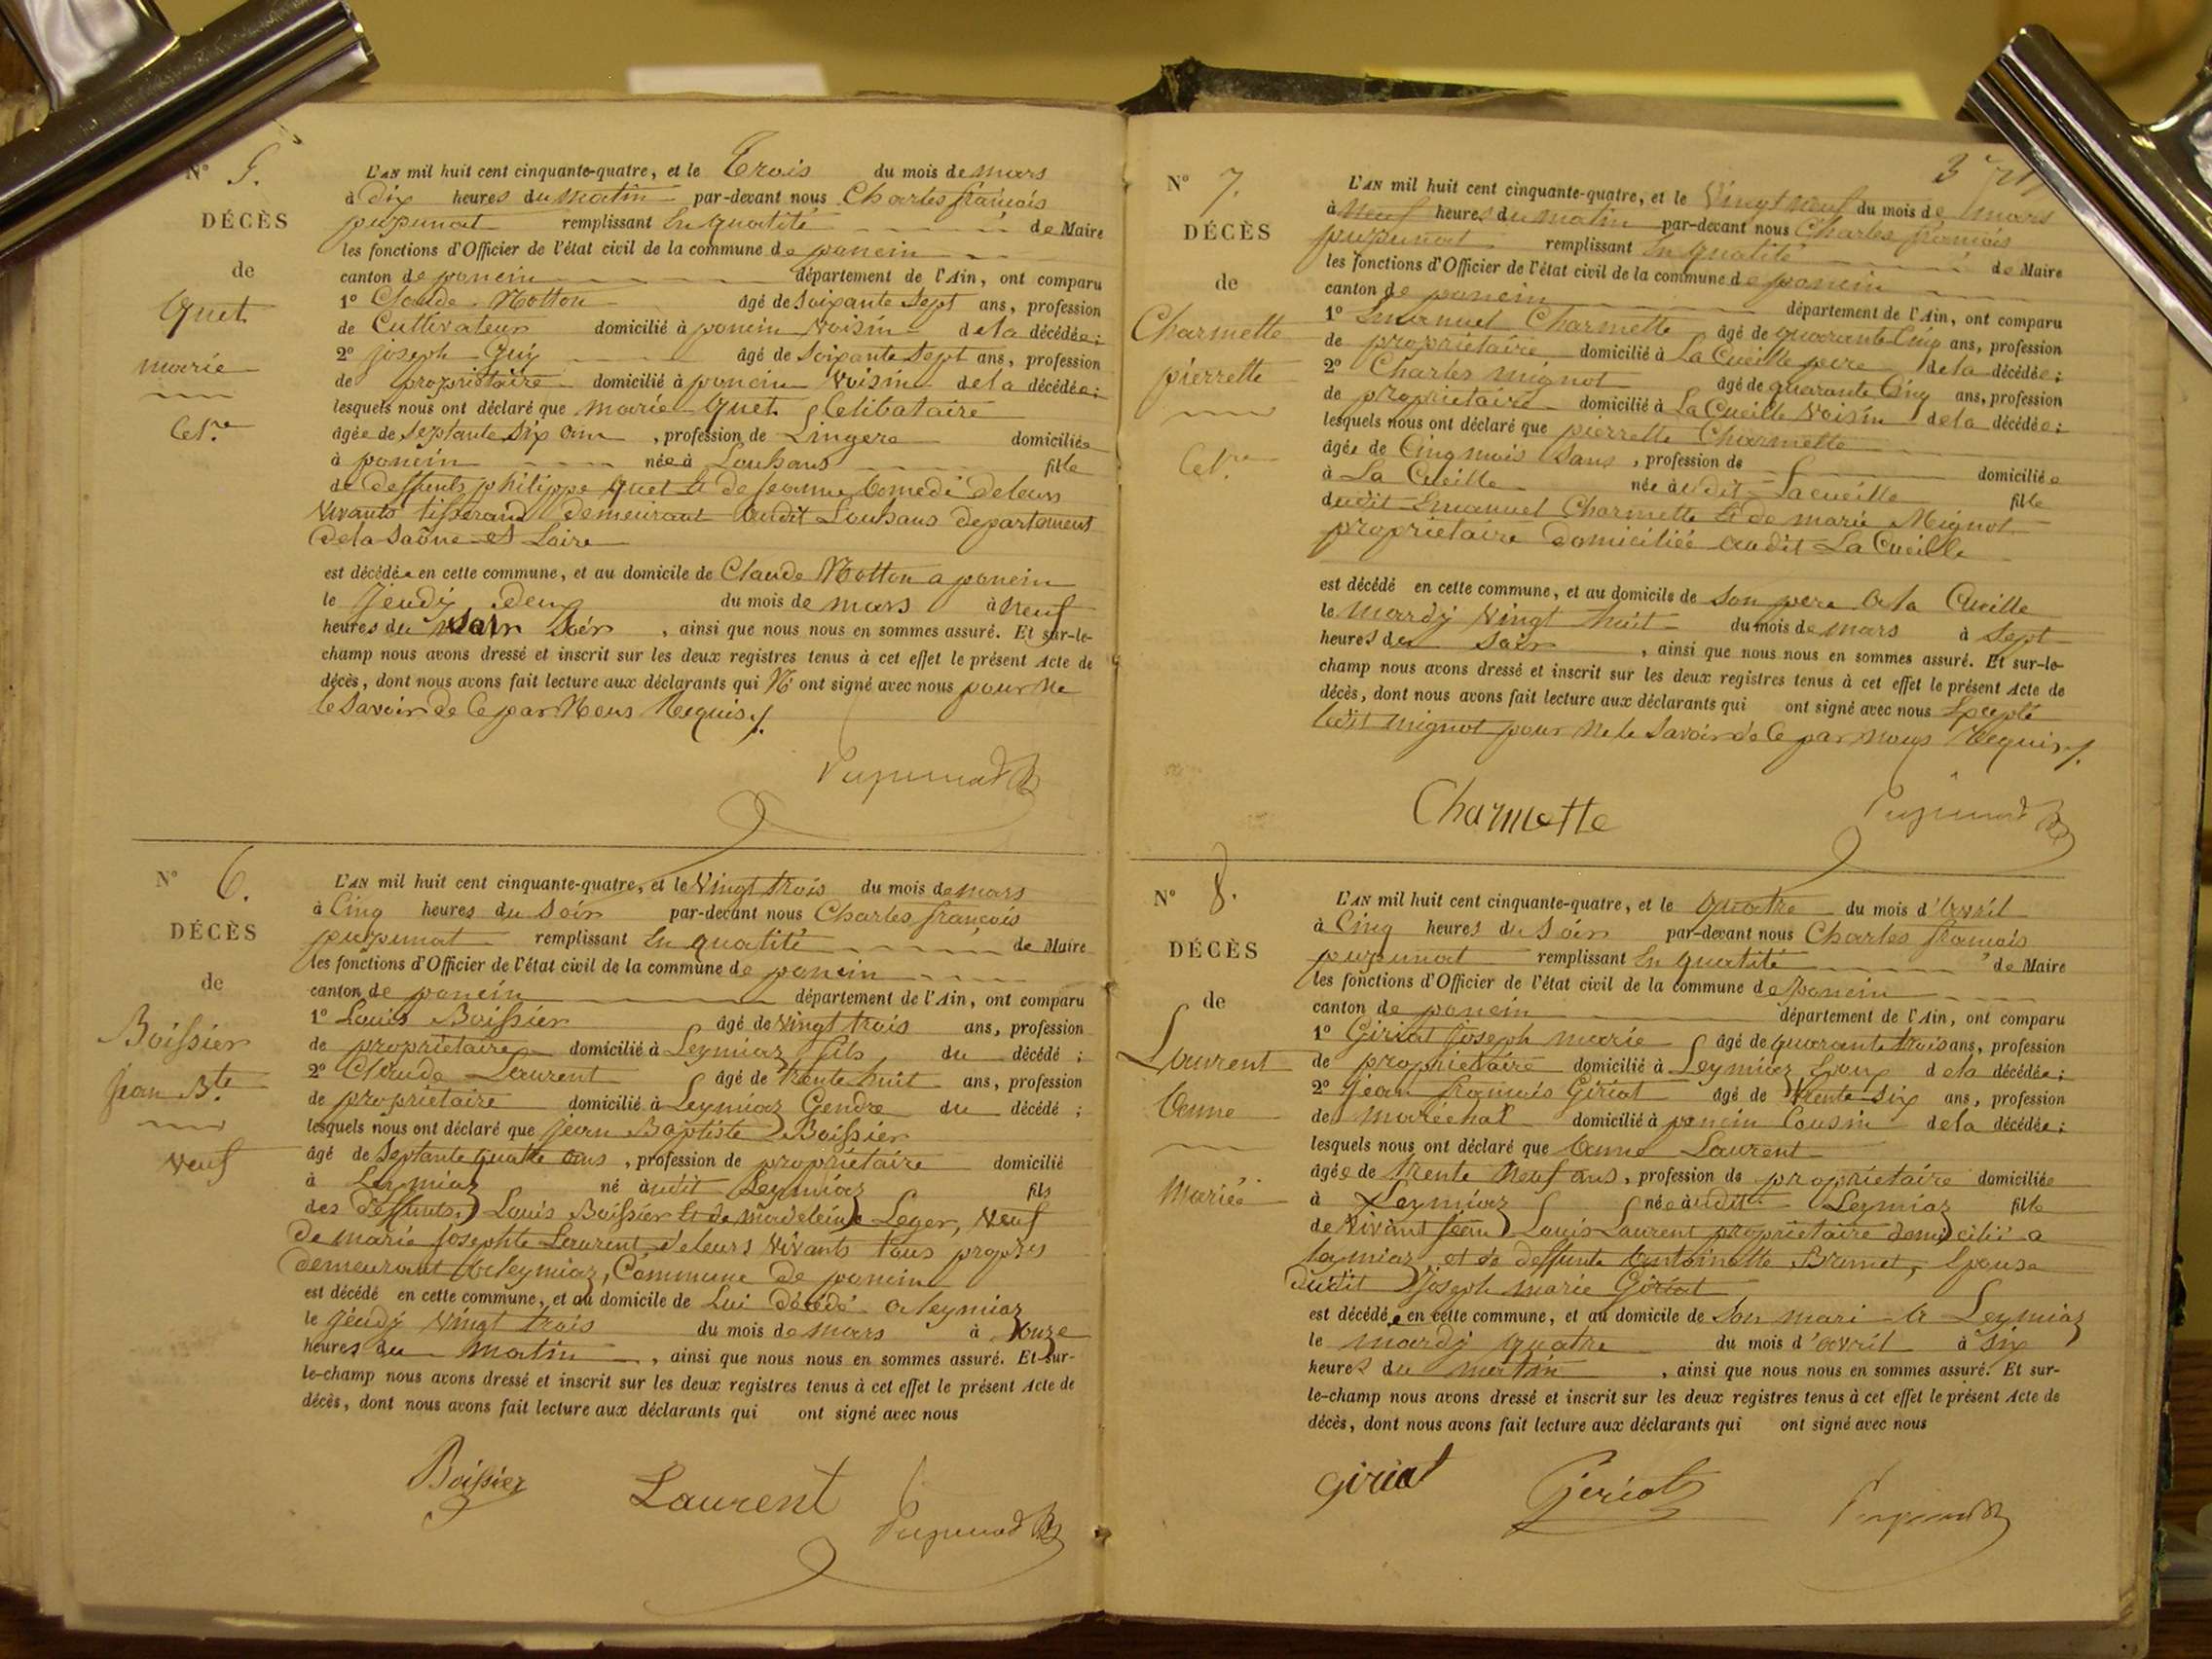 N° 5.
DÉCÈS
de
Quet
marie
Cel.re
L'AN mil huit cent cinquante-quatre, et le Trois du mois de mars
à Dix heures du matin par-devant nous Charles françois
pupunat remplissant En qualité de Maire
les fonctions d'Officier de l'état civil de la commune de poncin
canton de poncin département de l'Ain, ont comparu
1° Claude Motton âgé de Soixante Sept ans, profession
de Cultivateur domicilié à poncin voisin de la décédée;
2° joseph Guy âgé de Soixante Sept ans, profession
de propriétaire domicilié à poncin Voisin de la décédée;
lesquels nous ont déclaré que marie Quet Célibataire
âgée de Septante Six ans, profession de Lingere domiciliée
à poncin née à Louhans fille
de deffunts philippe Quet et de jeanne Comedi de leurs
Vivants tisserand demeurant audit Louhans departement
de la Saône et Loire
est décédée en cette commune, et au domicile de Claude Motton a poncin
le Jeudy deux du mois de mars à Neuf
heures du soir Soir, ainsi que nous nous en sommes assuré. Et sur-le-
champ nous avons dressé et inscrit sur les deux registres tenus à cet effet le présent Acte de
décès, dont nous avons fait lecture aux déclarants qui N' ont signé avec nous pour Ne
le Savoir de Ce par Nous Requis ./.
Pupunat
N° 6.
DÉCÈS
de
Boissier
jean B.te
veuf
L'AN mil huit cent cinquante-quatre, et le Vingt trois du mois de mars
à Cinq heures du Soir par-devant nous Charles françois
pupunat remplissant En qualité de Maire
les fonctions d'Officier de l'état civil de la commune de poncin
canton de poncin département de l'Ain, ont comparu
1° Louis Boissier âgé de vingt trois ans, profession
de propriétaire domicilié à Leymiaz fils du décédé;
2° Claude Laurent âgé de trente huit ans, profession
de propriétaire domicilié à Leymiaz Gendre du décédé;
lesquels nous ont déclaré que jean Baptiste Boissier
âgé de Septante quatre ans, profession de propriétaire domicilié
à Leymiaz né audit Leymiaz fils
des deffunts Louis Boissier et de madeleine Leger, veuf
de marie josephte Laurent, de leurs Vivants tous propres
demeurant a leymiaz, Commune de poncin
est décédé en cette commune, et au domicile de Lui décédé a leymiaz
le jeudy Vingt trois du mois de mars à onze
heures du matin, ainsi que nous nous en sommes assuré. Et sur-
le-champ nous avons dressé et inscrit sur les deux registres tenus à cet effet le présent Acte de
décès, dont nous avons fait lecture aux déclarants qui ont signé avec nous
Boissier Laurent Pupunat
3
N° 7.
DÉCÈS
de
Charmette
pierrette
Cel.re
L'AN mil huit cent cinquante-quatre, et le Vingt neuf du mois de mars
à Neuf heures du matin par-devant nous Charles françois
pupunat remplissant En qualité de Maire
les fonctions d'Officier de l'état civil de la commune de poncin
canton de poncin département de l'Ain, ont comparu
1° Emanuel Charmette âgé de quarante Cinq ans, profession
de propriétaire domicilié à La Cueille pere de la décédée;
2° Charles mignot âgé de quarante Cinq ans, profession
de propriétaire domicilié à La Cueille Voisin de la décédée;
lesquels nous ont déclaré que pierrette Charmette
âgée de Cinq mois Sans, profession de domiciliée
à La Cueille née audit Lacueille fille
dudit Emanuel Charmette et de marie Mignot
propriétaire domiciliée audit La Cueille
est décédé en cette commune, et au domicile de Son pere a la Cueille
le mardy Vingt huit du mois de mars à Sept
heures du Soir, ainsi que nous nous en sommes assuré. Et sur-le-
champ nous avons dressé et inscrit sur les deux registres tenus à cet effet le présent Acte de
décès, dont nous avons fait lecture aux déclarants qui ont signé avec nous Excepté
ledit mignot pour Ne le Savoir de Ce par nous Requis ./.
Charmette Pupunat
N° 8.
DÉCÈS
de
Laurent
Anne
Mariée
L'AN mil huit cent cinquante-quatre, et le quatre du mois d'avril
à Cinq heures du Soir par-devant nous Charles françois
pupunat remplissant En qualité de Maire
les fonctions d'Officier de l'état civil de la commune de poncin
canton de poncin département de l'Ain, ont comparu
1° Giriat joseph marie âgé de quarante trois ans, profession
de propriétaire domicilié à Leymiaz Epoux de la décédée;
2° jean françois Giriat âgé de trente Six ans, profession
de maréchal domicilié à poncin Cousin de la décédée;
lesquels nous ont déclaré que Anne Laurent
âgée de trente Neuf ans, profession de propriétaire domiciliée
à Leymiaz née audit Leymiaz fille
de vivant jean Louis Laurent propriétaire domicilié a
leymiaz et de deffunte Antoinette Brunet, Epouse
dudit joseph marie Giriat
est décédée en cette commune, et au domicile de Son mari A Leymiaz
le mardy quatre du mois d'avril à Six
heures du matin, ainsi que nous nous en sommes assuré. Et sur-
le-champ nous avons dressé et inscrit sur les deux registres tenus à cet effet le présent Acte de
décès, dont nous avons fait lecture aux déclarants qui ont signé avec nous
Giriat Giriat Pupunat